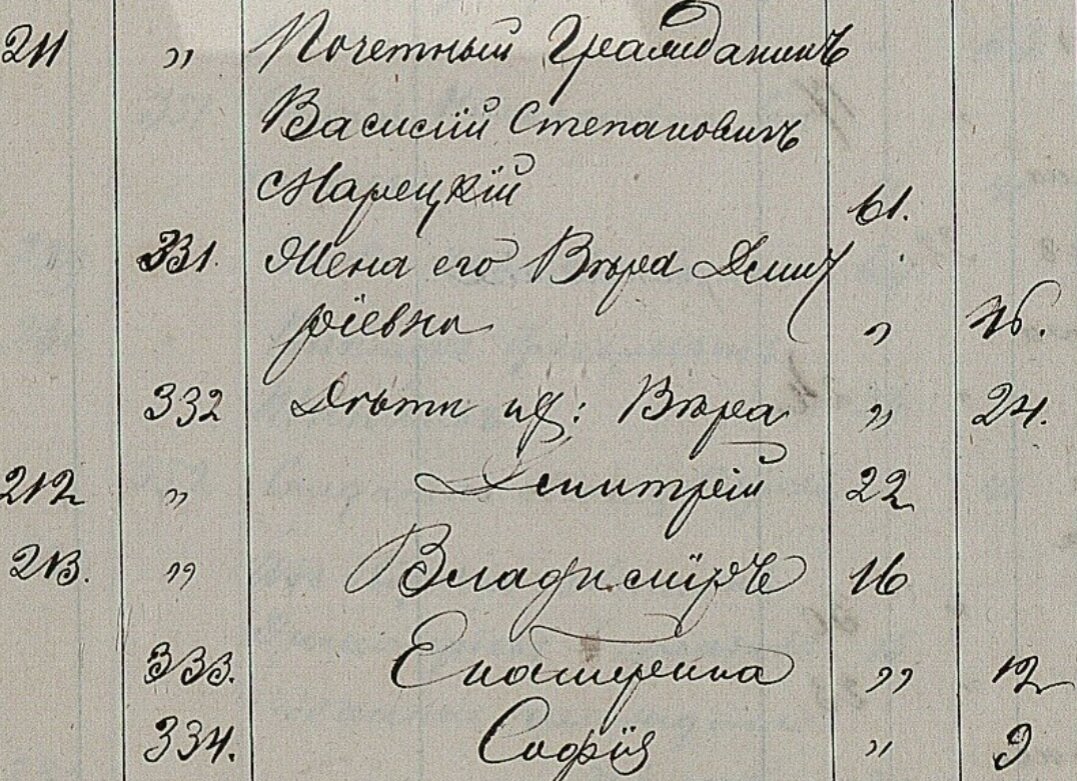 211 " Почетный Гражданинъ
Василій Степановичъ
Марецкій 61.
331. Жена его Вѣра Дмит
ріевна " 46.
332 Дѣти ихъ: Вѣра " 24.
212 " Дмитрій 22
213. " Владиміръ 16
333. Екатерина " 12
334. Софія " 9